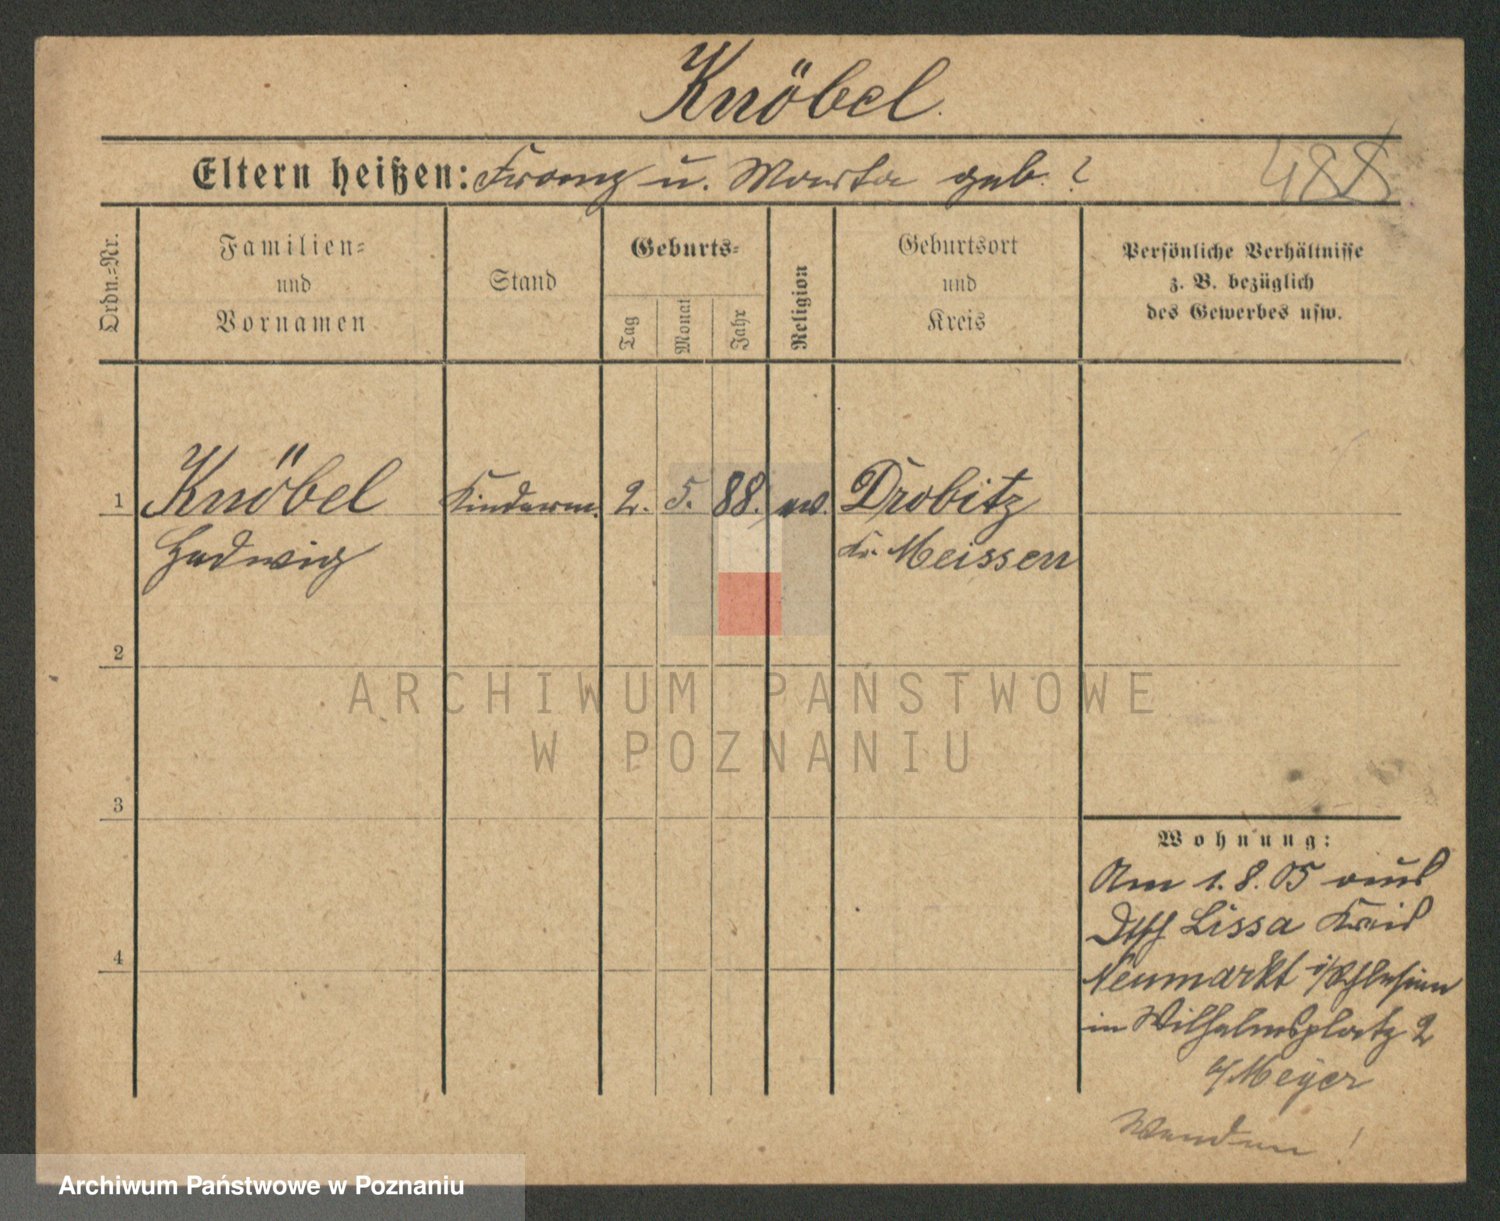 Knöbel.
Eltern heißen: Franz u. Marta geb. ?
488
Ordn.=Nr.
Familien=
und
Vornamen
Stand
Geburts=
Tag
Monat
Jahr
Religion
Geburtsort
und
Kreis
Persönliche Verhältnisse
z. B. bezüglich
des Gewerbes usw.
1 Knöbel Kinderm. 2. 5. 88. ev. Drobitz
Hedwig Kr. Meissen
2
ARCHIWUM PAŃSTWOWE
W POZNANIU
3
Wohnung:
Am 1. 8. 05 aus
Dtsch Lissa Kreis
4
Neumarkt i/Schlesien
in Wilhelmsplatz 2
b/Meyer
Wenden!
Archiwum Państwowe w Poznaniu